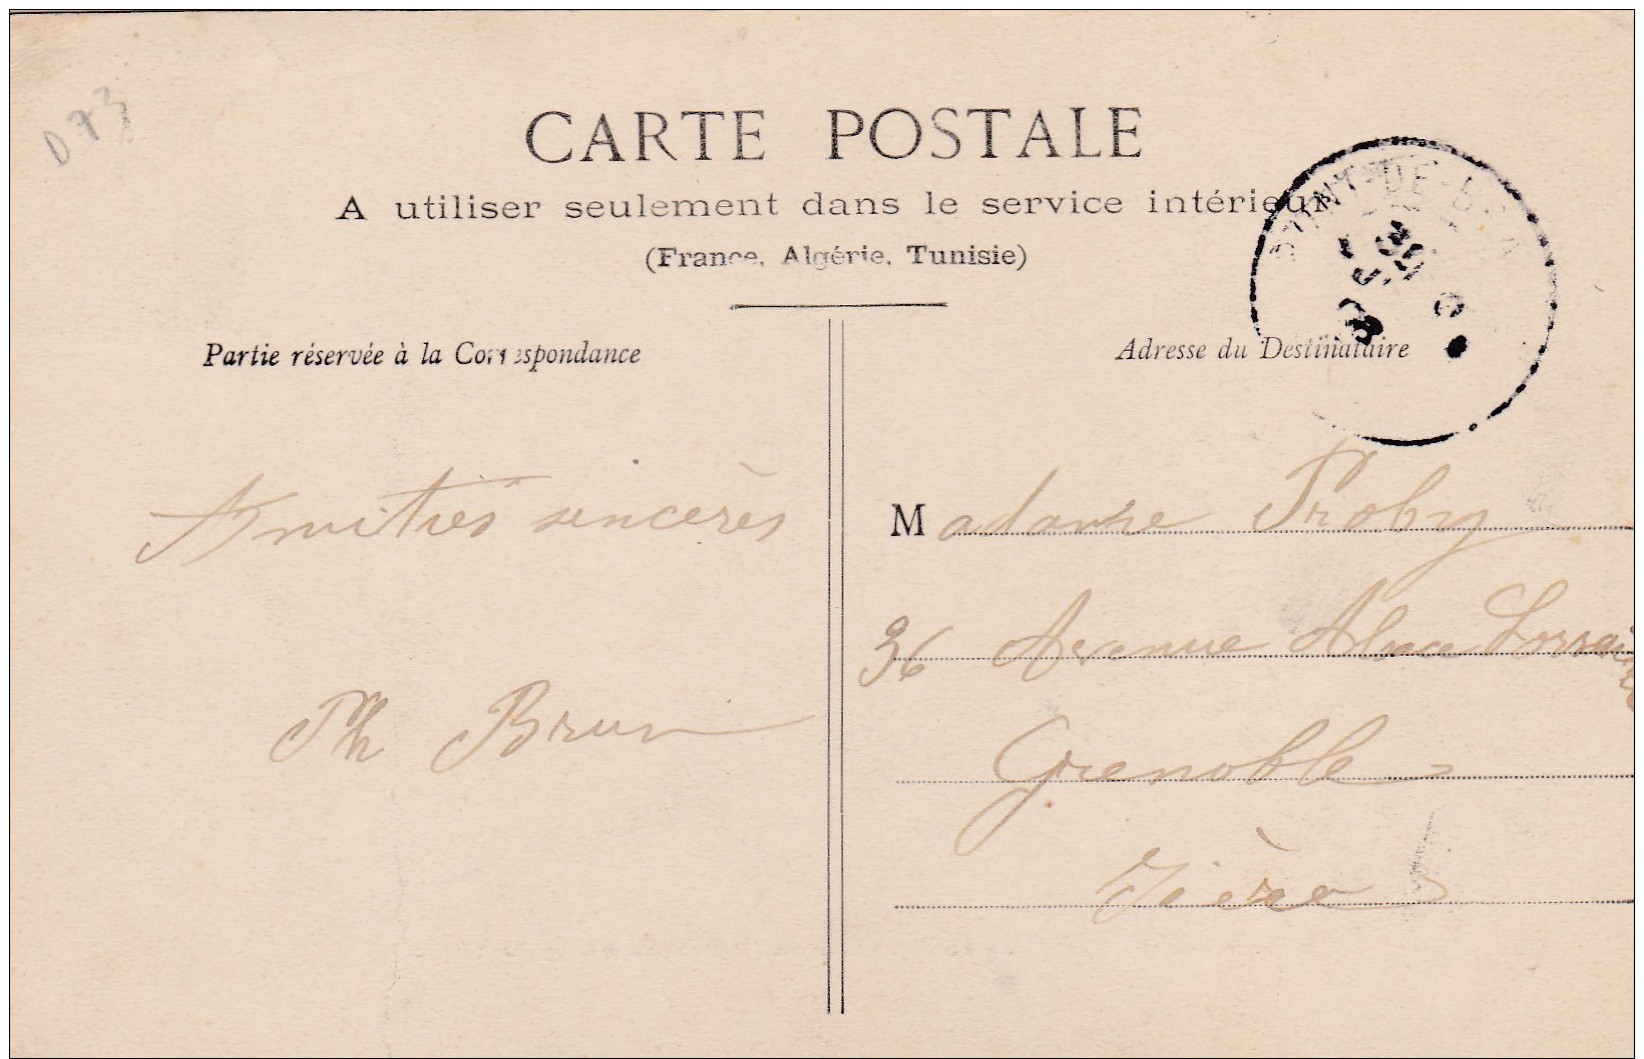 D73
CARTE POSTALE
A utiliser seulement dans le service intérieur
(France, Algérie, Tunisie)
Partie réservée à la Correspondance
Adresse du Destinataire
Amitiés sincères
Ph Brun
Madame Proby
36 Avenue Alsace Lorraine
Grenoble
Isère